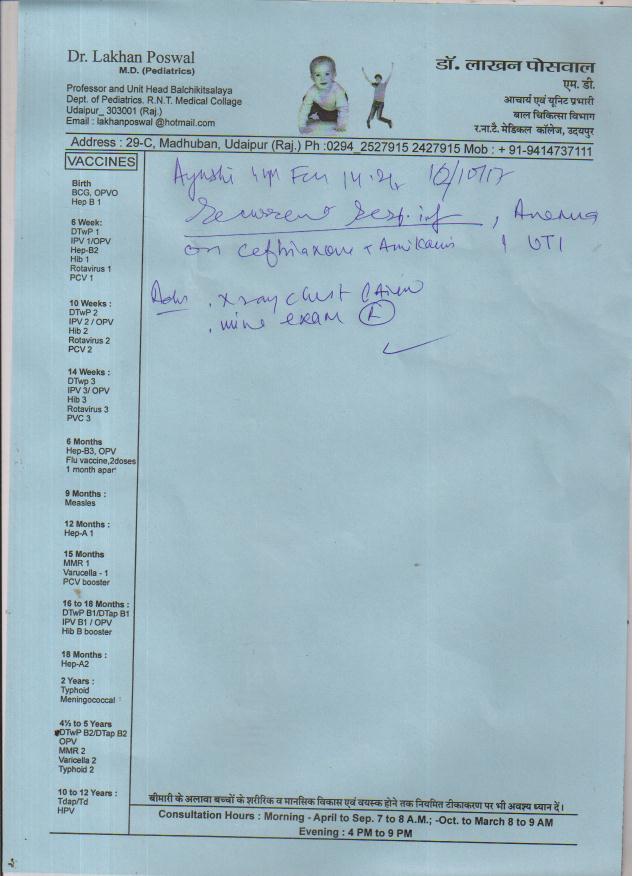 Dr. Lakhan Poswal
M.D. (Pediatrics)
Professor and Unit Head Balchikitsalaya
Dept. of Pediatrics. R.N.T. Medical Collage
Udaipur_ 303001 (Raj.)
Email : lakhanposwal @hotmail.com
डॉ. लाखन पोसवाल
एम. डी.
आचार्य एवं यूनिट प्रभारी
बाल चिकित्सा विभाग
र.ना.टै. मेडिकल कॉलेज, उदयपुर
Address : 29-C, Madhuban, Udaipur (Raj.) Ph :0294_2527915 2427915 Mob : + 91-9414737111
VACCINES
Birth
BCG, OPVO
Hep B 1
6 Week:
DTwP 1
IPV 1/OPV
Hep-B2
Hib 1
Rotavirus 1
PCV 1
10 Weeks :
DTwP 2
IPV 2 / OPV
Hib 2
Rotavirus 2
PCV 2
14 Weeks :
DTwp 3
IPV 3/ OPV
Hib 3
Rotavirus 3
PVC 3
6 Months
Hep-B3, OPV
Flu vaccine,2doses
1 month apart
9 Months :
Measles
12 Months :
Hep-A 1
15 Months
MMR 1
Varucella - 1
PCV booster
16 to 18 Months :
DTwP B1/DTap B1
IPV B1 / OPV
Hib B booster
18 Months :
Hep-A2
2 Years :
Typhoid
Meningococcal
4½ to 5 Years
DTwP B2/DTap B2
OPV
MMR 2
Varicella 2
Typhoid 2
10 to 12 Years :
Tdap/Td
HPV
Ayushi
Recurrent Resp. inf
on ceftriaxone + Amikacin UTI
Adv . x ray chest
. urine exam (R)
बीमारी के अलावा बच्चों के शरीरिक व मानसिक विकास एवं वयस्क होने तक नियमित टीकाकरण पर भी अवश्य ध्यान दें।
Consultation Hours : Morning - April to Sep. 7 to 8 A.M.; -Oct. to March 8 to 9 AM
Evening : 4 PM to 9 PM